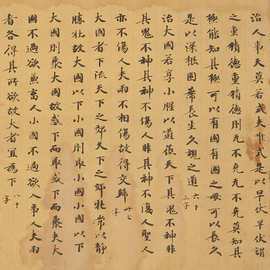 治人事天莫若式夫唯式是以早伏早伏謂
之重積德重積德則无不克无不克莫知其
極能知其極可以有國有國之母可以長久
是以深根固蔕長生久視之道
治大國若烹小腥以道莅天下其鬼不神非
其鬼不神其神不傷人非其神不傷人聖人
亦不傷人夫兩不相傷故得交歸
大國者下流天下之郊天下之郊牝常以静
勝牡故大國以下小國則取小國小國以下
大國則聚大國故或下而取或下而聚大
國不過欲兼畜人小國不過欲入事人夫兩
者各得其所欲故大者宜爲下